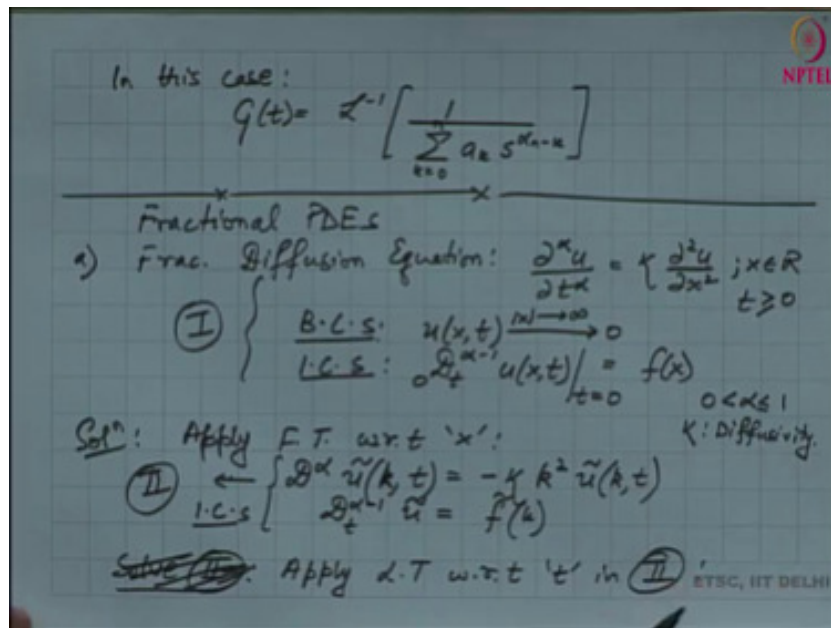 In this case:
G(t) = ℒ⁻¹ [ 1 / Σ_{k=0}^{n} a_k s^{α_{n-k}} ]
NPTEL
Fractional PDEs
a) Frac. Diffusion Equation: ∂^α u / ∂t^α = κ ∂²u / ∂x² ; x ∈ R
t ≥ 0
I { B.C.s: u(x,t) →^{|x|→∞} 0
I.C.s: ₀D_t^{α-1} u(x,t)|_{t=0} = f(x)
0 < α ≤ 1
κ: Diffusivity.
Solⁿ: Apply F.T. w.r.t 'x':
II ← { D^α ũ(k, t) = -κ k² ũ(k,t)
I.C.s { D_t^{α-1} ũ = f̃(k)
Solve II. Apply L.T w.r.t 't' in II :
ETSC, IIT DELHI